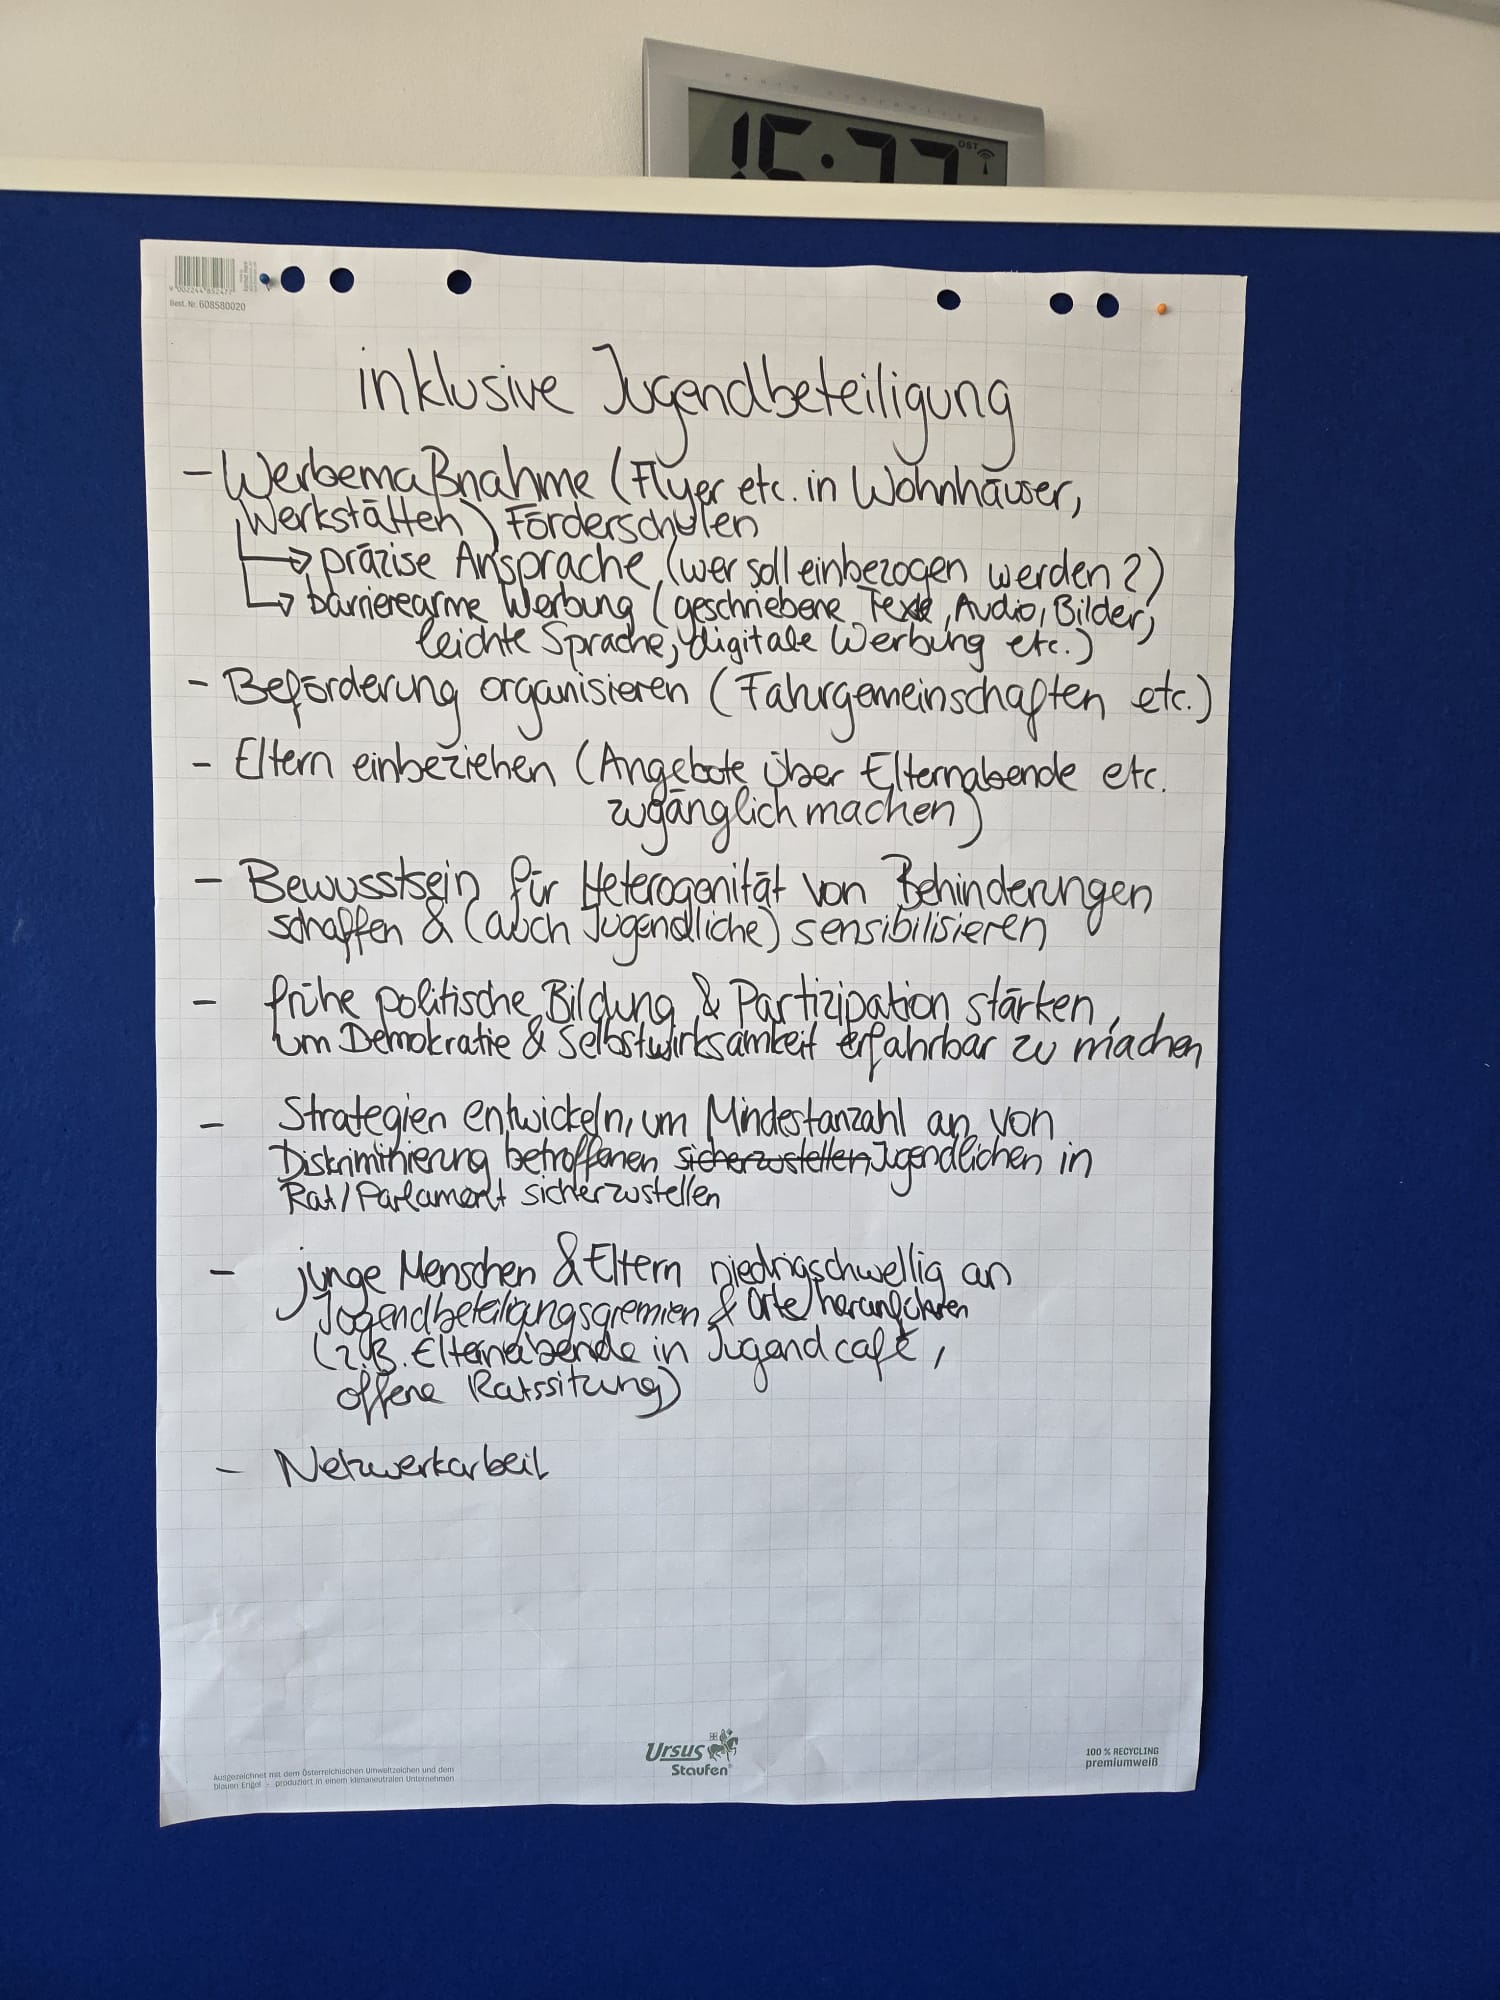 RADIO CONTROLLED
15:37
DST
9 002244 852477
Best. Nr. 608580020
inklusive Jugendbeteiligung
- Werbemaßnahme (Flyer etc. in Wohnhäuser,
Werkstätten) Förderschulen
→ präzise Ansprache (wer soll einbezogen werden?)
→ barrierearme Werbung (geschriebene Texte, Audio, Bilder,
leichte Sprache, digitale Werbung etc.)
- Beförderung organisieren (Fahrgemeinschaften etc.)
- Eltern einbeziehen (Angebote über Elternabende etc.
zugänglich machen)
- Bewusstsein für Heterogenität von Behinderungen
schaffen & (auch Jugendliche) sensibilisieren
- frühe politische Bildung & Partizipation stärken,
um Demokratie & Selbstwirksamkeit erfahrbar zu machen
- Strategien entwickeln, um Mindestanzahl an von
Diskriminierung betroffenen sicherzustellen Jugendlichen in
Rat/Parlament sicherzustellen
- junge Menschen & Eltern niedrigschwellig an
Jugendbeteiligungsgremien & Orte heranführen
(z.B. Elternabende in Jugendcafé,
offene Ratssitzung)
- Netzwerkarbeit
Ursus
Staufen
Ausgezeichnet mit dem Österreichischen Umweltzeichen und dem
blauen Engel - produziert in einem klimaneutralen Unternehmen
100 % RECYCLING
premiumweiß